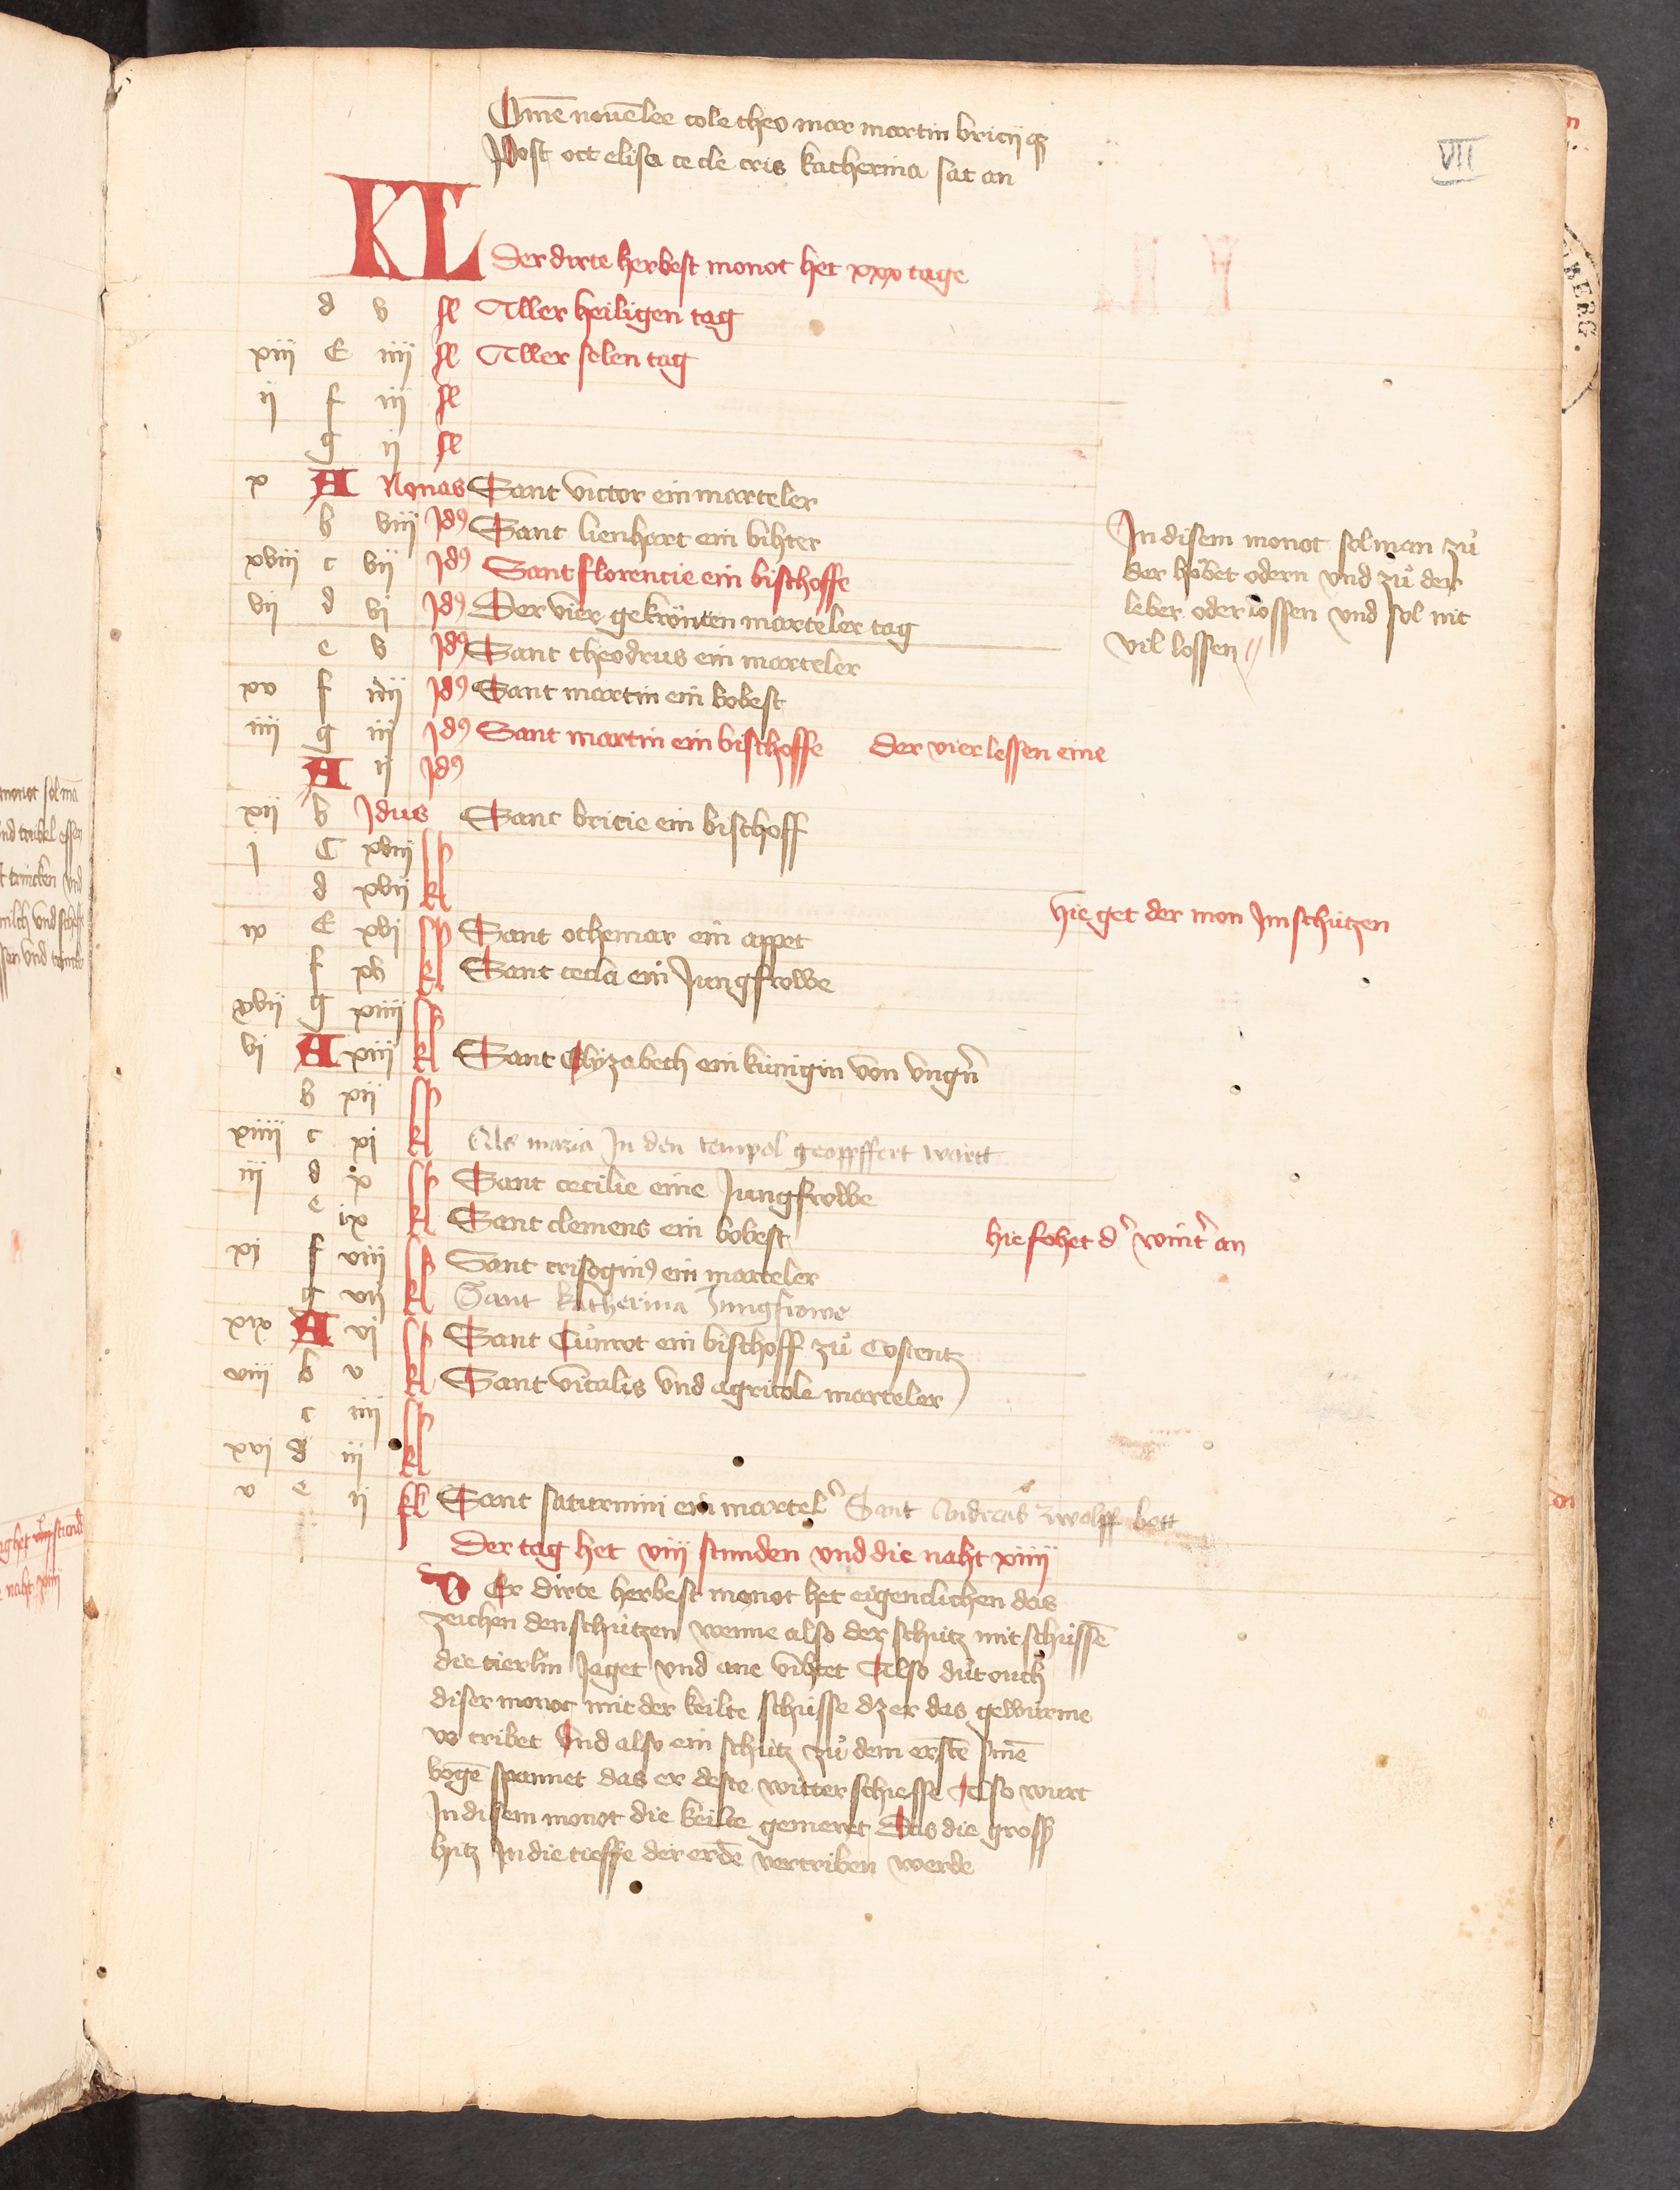 Omē novēlee cole theo mar martin bricij qꝫ
Post oct elisa ce cle cris katherina sat an
VII
KL
Der dirte herbest monot het xxx tage
d v Aller heiligen tag
xiii E iiii Aller selen tag
ij f iij
g ij
x A Nonas Sant victor ein marteler
b viii Jdꝰ Sant lienhart ein bihter
xviii c vij Jdꝰ Sant florencie ein bischoffe
vij d vj Jdꝰ Der vier gekrönten marteler tag
e v Jdꝰ Sant theodrus ein marteler
xv f iiij Jdꝰ Sant martin ein bobest
iiij g iij Jdꝰ Sant martin ein bischoffe Der vier lessen eine
A ij Jdꝰ
xij b Jdus Sant bricie ein bischoff
j C xviij
d xvij kl
ix E xvj Sant othemar ein appet
f xv kl Sant tecla ein Jungfrowe
xvij g xiiij
vj A xiii kl Sant Elyzabeth ein künigin von vngn̄
b xij
xiiij c xj kl Als maria Jn den tempol geopffert wartt
iij d x Sant cecilie eine Jungfrowe
e ix kl Sant clemens ein bobest
xj f viij Sant crisoginꝰ ein marteler
g vij kl Sant katherina Jungfrowe
xix A vj Sant Cůnrot ein bischoff zů Costentz
viij b v kl Sant vitalis vnd agricole marteler
c iiij
xvj d iij kl
v e ij kl Sant saturnini ein martel̾ Sant Andreas zwolff bott
Der tag het viij stunden vnd die naht xiiij
In disem monot sol man zů
der höbet odern vnd zů der
leber oder lossen vnd sol nit
vil lossen
hie get der mon Jm schützen
hie fohet d̾ wint̾ an
DEr dirte herbest monot het eigenclichen das
zeichen den schützen wenne also der schütz mit schüssē
die tierlin Jaget vnd ane vihtet Also důt ouch
diser monot mit der keilte schüsse dz er das gewürme
vs tribet Vnd also ein schütz zů dem erstē sinē
bogē spannet das er deste witter schiesse Also wurt
Jn disem monot die keilte gemeret Das die gross
hitz Jn die tieffe der erdē vertriben werde